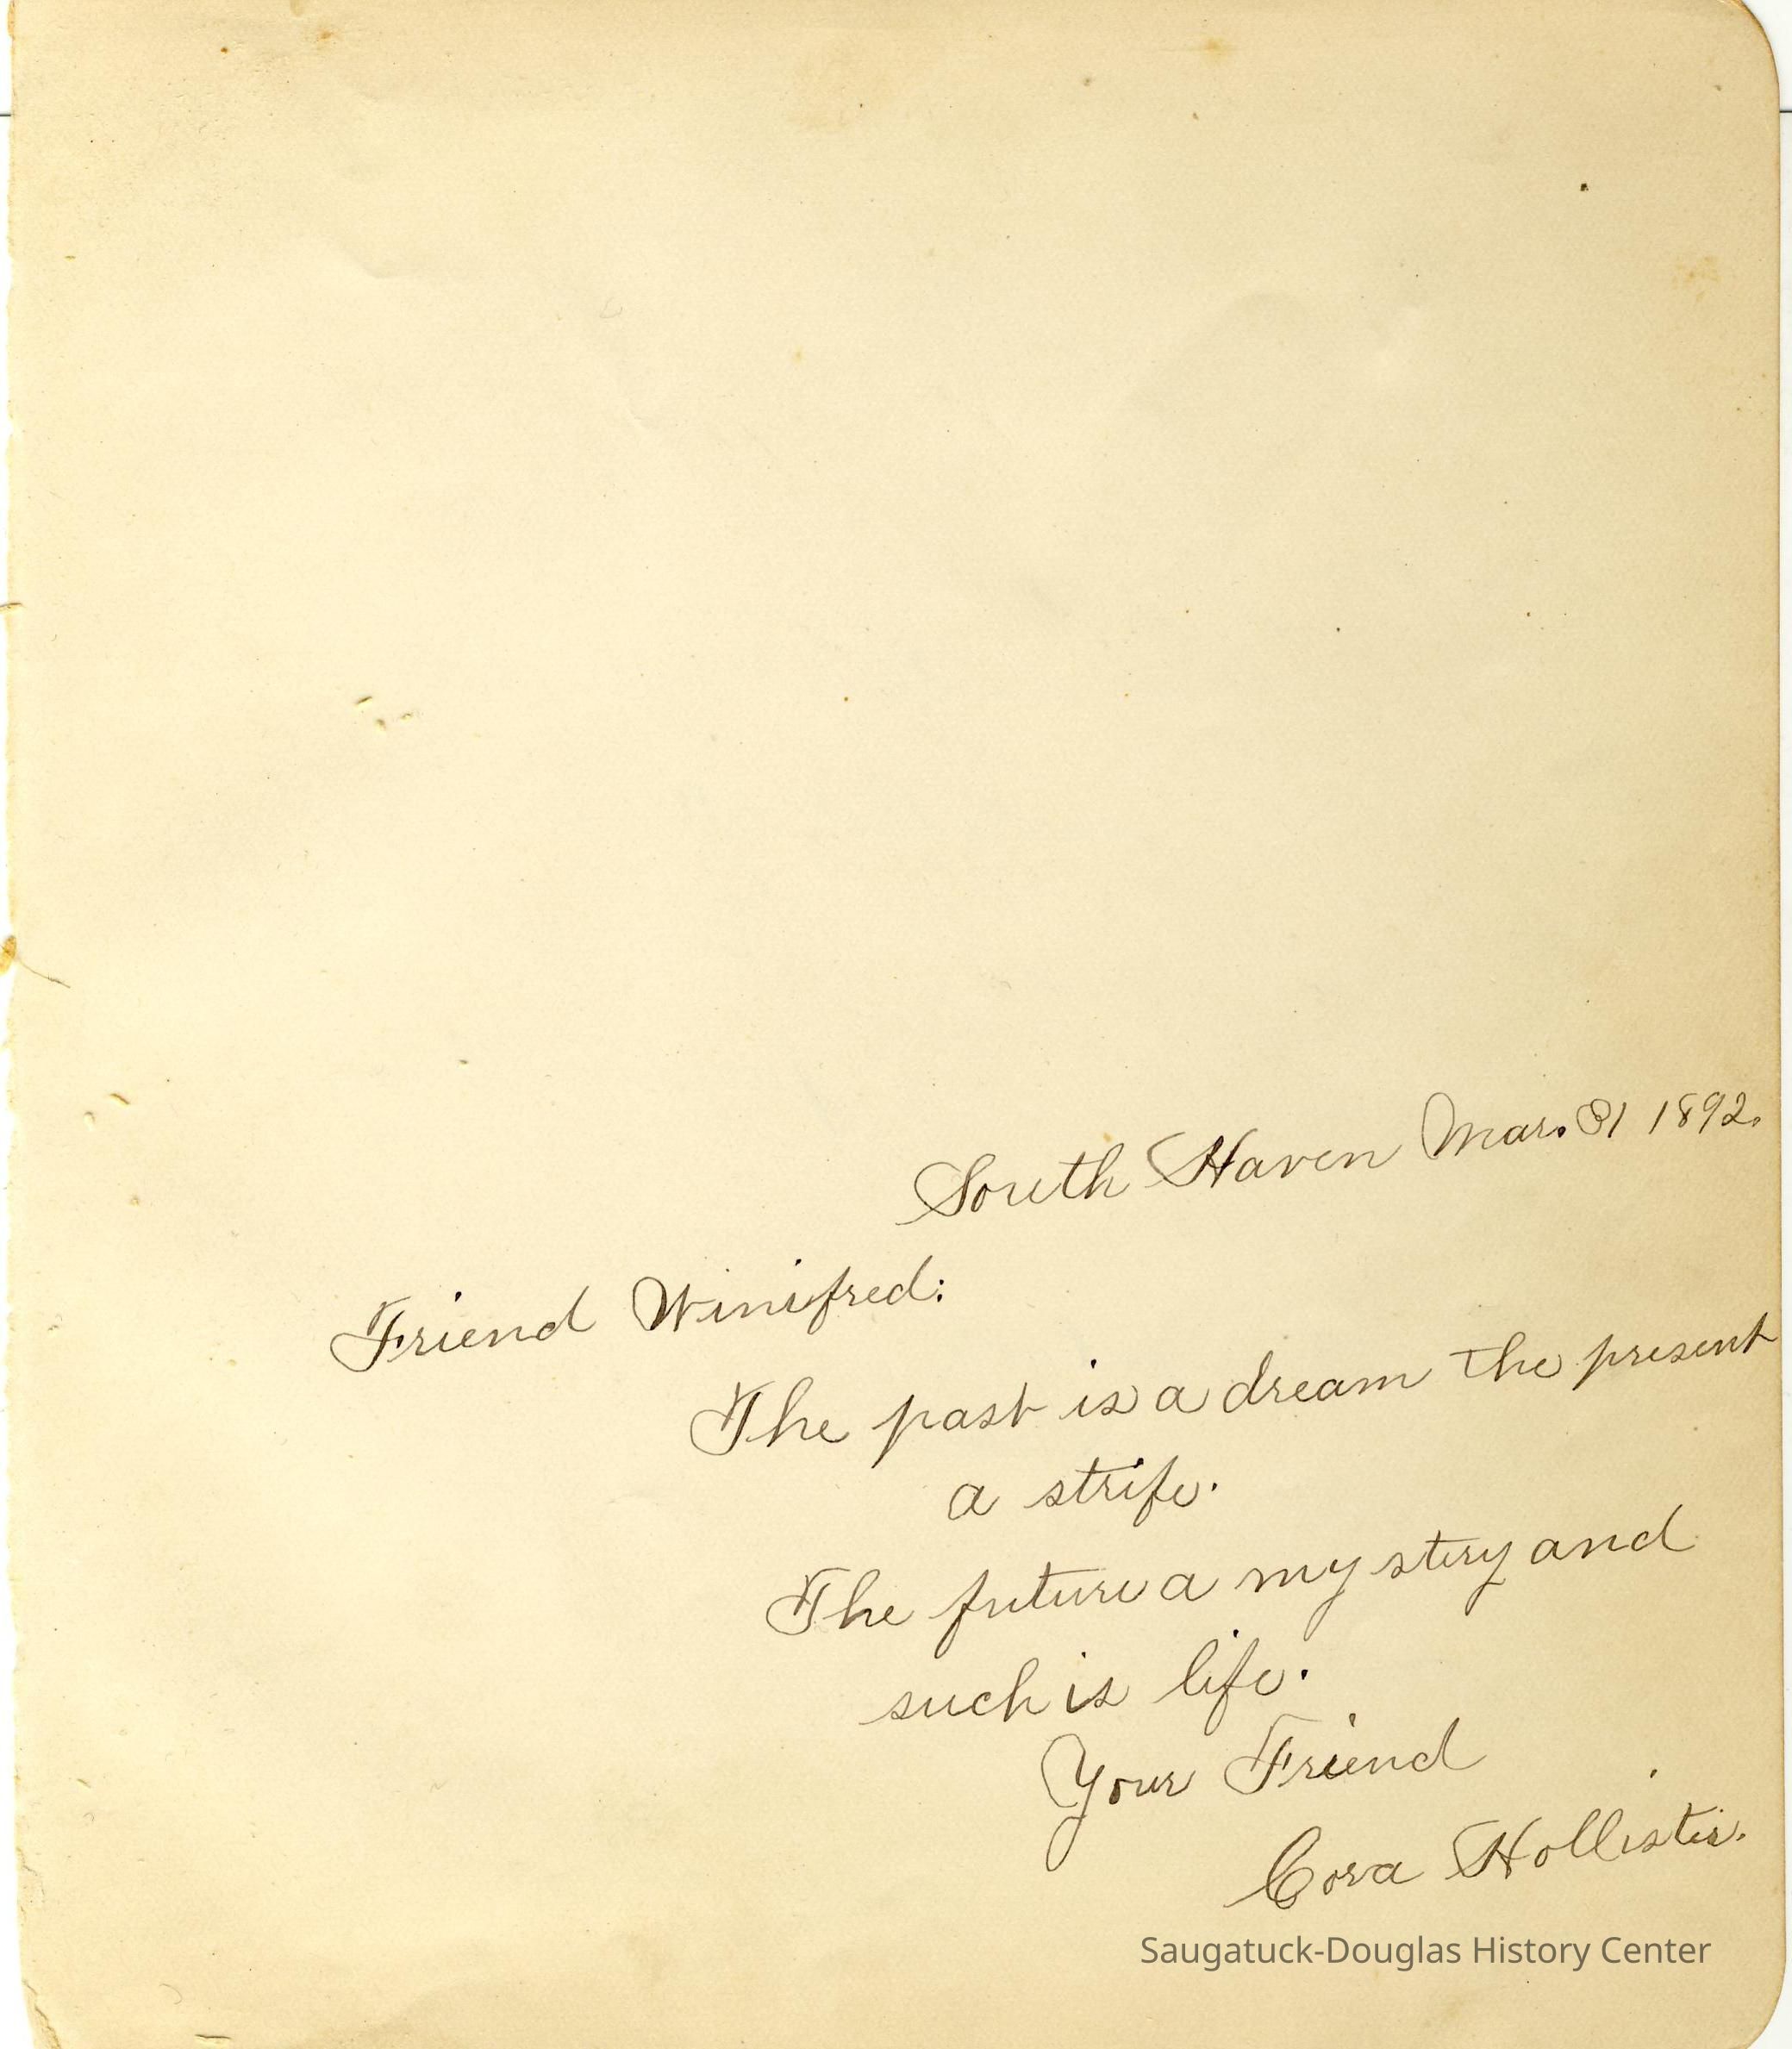 South Haven Mar. 31 1892.
Friend Winifred:
The past is a dream the present
a strife.
The future a mystery and
such is life.
Your Friend
Cora Hollister.
Saugatuck-Douglas History Center